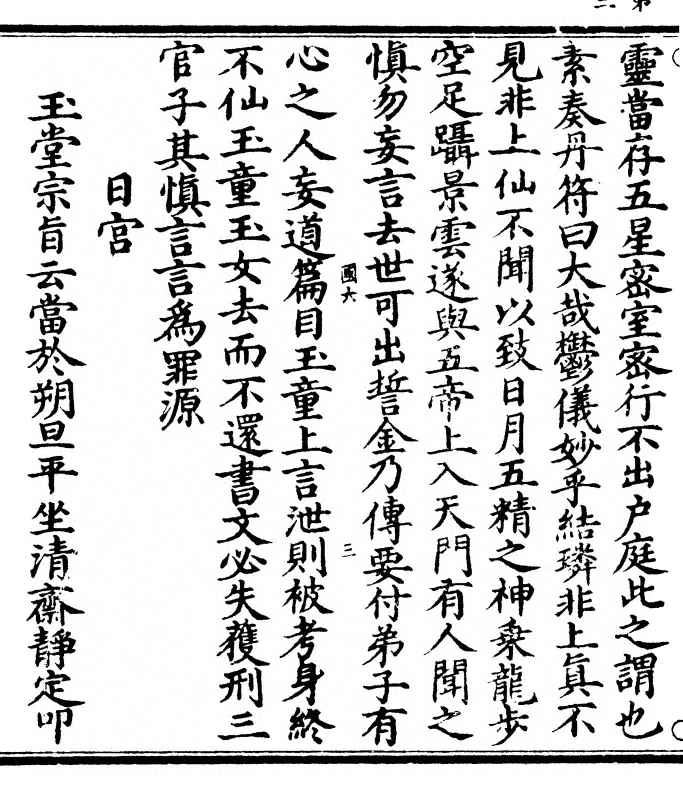 靈當存五星密室密行不出户庭此之謂也
素奏丹符曰大哉鬱儀妙乎結璘非上真不
見非上仙不聞以致日月五精之神乗龍步
空足躡景雲遂與五帝上入天門有人聞之
慎勿妄言去世可出誓金乃傳要付弟子有
國六 三
心之人妄道篇目玉童上言泄則被考身終
不仙玉童玉女去而不還書文必失獲刑三
官子其慎言言爲罪源
日宮
玉堂宗旨云當於朔旦平坐清齋靜定叩